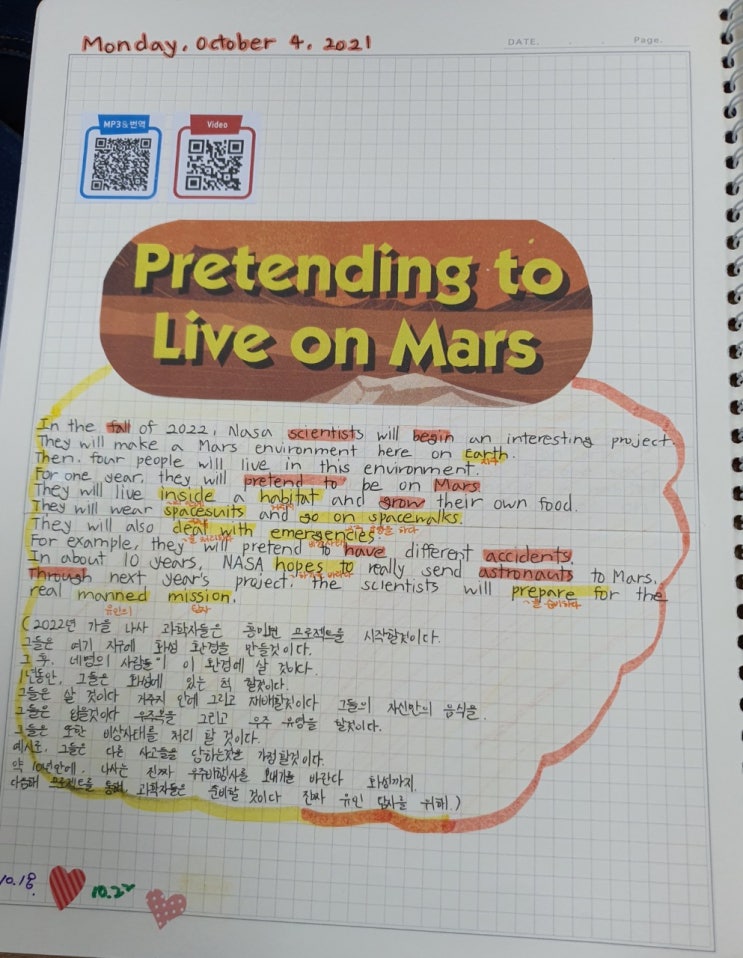 Monday, October 4, 2021
DATE. . . Page.
MP3&번역
Video
Pretending to
Live on Mars
In the fall of 2022, Nasa scientists will begin an interesting project.
They will make a Mars environment here on Earth.
지구
Then, four people will live in this environment.
For one year, they will pretend to be on Mars
They will live inside a habitat and grow their own food.
They will wear spacesuits and go on spacewalks.
They will also deal with emergencies
For example, they will pretend to have different accidents.
In about 10 years, NASA hopes to really send astronauts to Mars.
Through next year's project, the scientists will prepare for the
real manned mission.
유인의 탐사
(2022년 가을 나사 과학자들은 흥미로운 프로젝트를 시작할것이다.
그들은 여기 지구에 화성 환경을 만들것이다.
그 후, 네명의 사람들이 이 환경에 살 것이다.
1년동안, 그들은 화성에 있는 척 할것이다.
그들은 살 것이다 거주지 안에 그리고 재배할것이다 그들의 자신만의 음식을.
그들은 입을것이다 우주복을 그리고 우주 유영을 할것이다.
그들은 또한 비상사태를 처리 할 것이다.
예시로, 그들은 다른 사고들을 당하는것을 가정할것이다.
약 10년안에, 나사는 진짜 우주비행사를 보내기를 바란다 화성까지.
다음해 프로젝트를 통해, 과학자들은 준비할 것이다 진짜 유인 탐사를 위해.)
10.18.
10.22